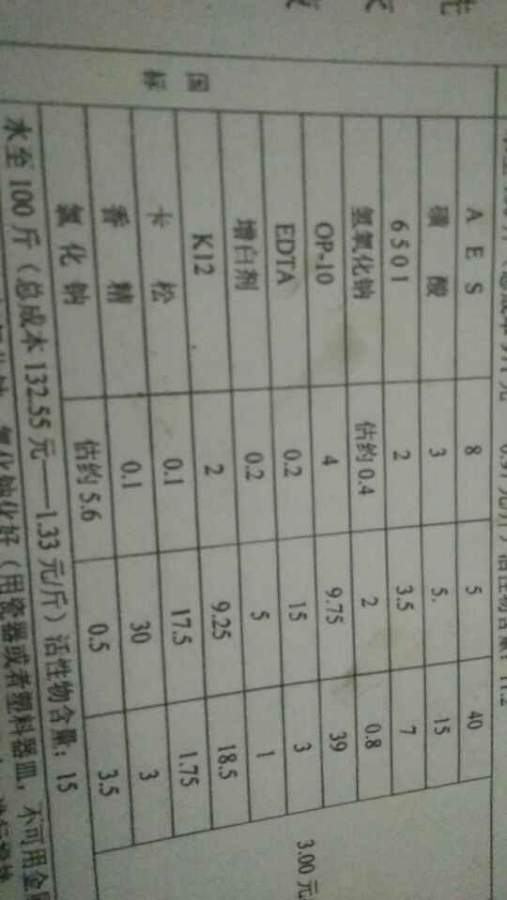 0.97元/斤）活性物含量：11.2
A E S 8 5 40
磺 酸 3 5. 15
6501 2 3.5 7
氢氧化钠 估约 0.4 2 0.8
OP-10 4 9.75 39
3.00 元
EDTA 0.2 15 3
国标
增白剂 0.2 5 1
K12 2 9.25 18.5
卡 松 0.1 17.5 1.75
香 精 0.1 30 3
氯 化 钠 估约 5.6 0.5 3.5
水至 100 斤（总成本 132.55 元——1.33 元/斤）活性物含量：15
化好（用瓷器或者塑料器皿，不可用金